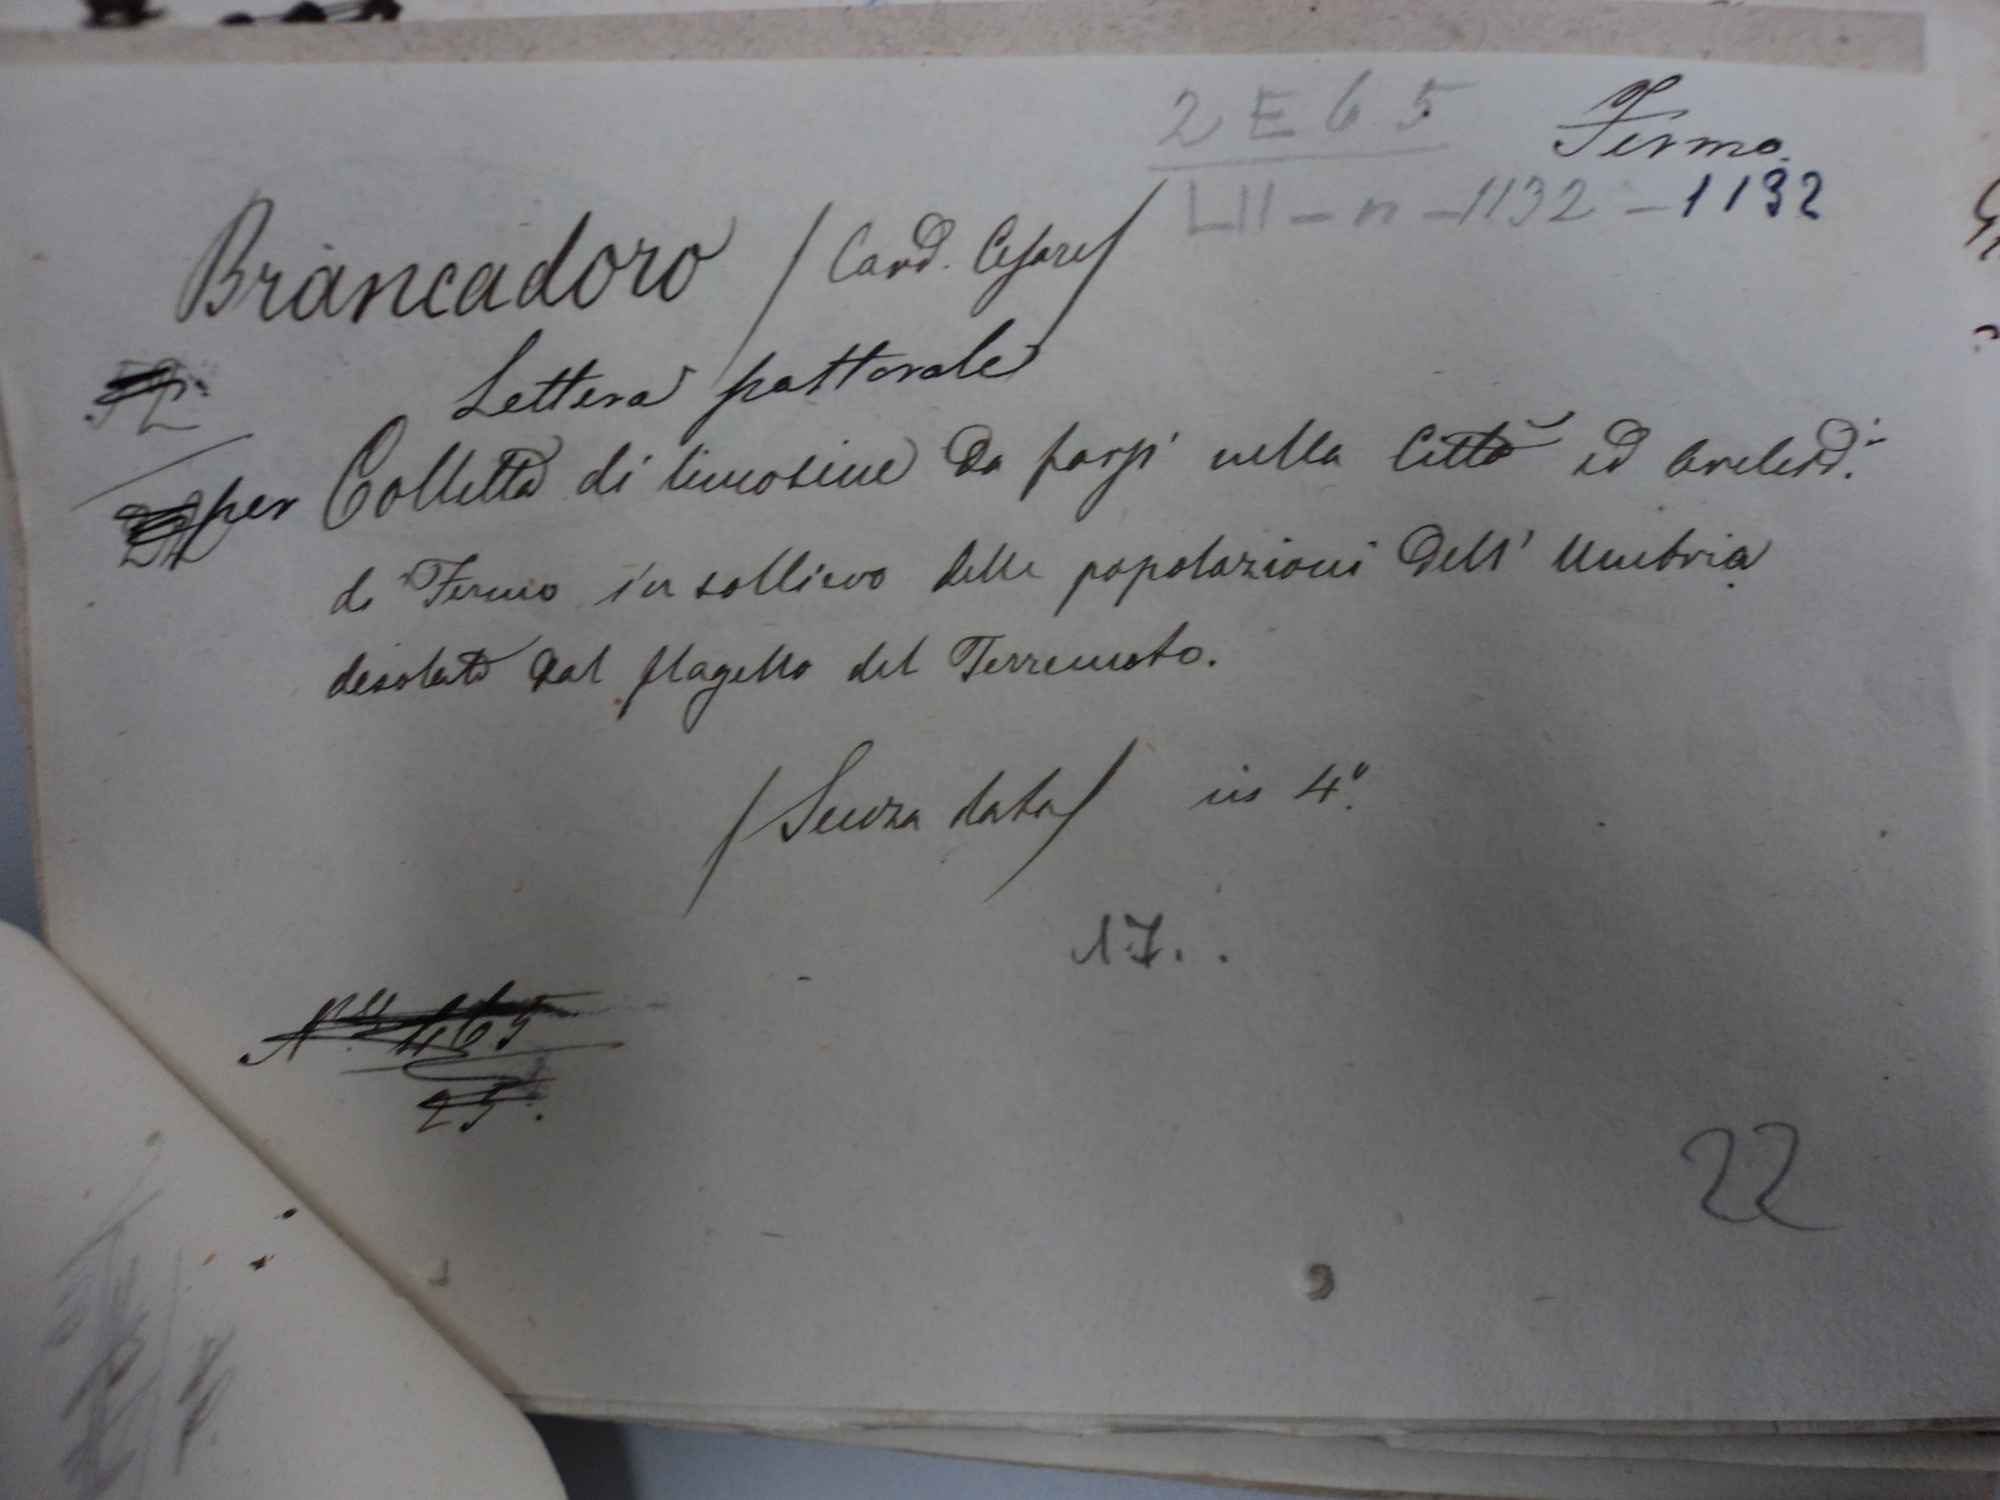 2 E 6 5
Fermo.
LII - n - 1132 - 1132
Brancadoro / Card. Cesare /
Lettera pastorale
per Colletta di limosine da farsi nella Città ed Arcidi.
di Fermo in sollievo delle popolazioni dell' Umbria
desolate dal flagello del Terremoto.
/ Senza data / in 4.º
17..
N.º 465
25.
22